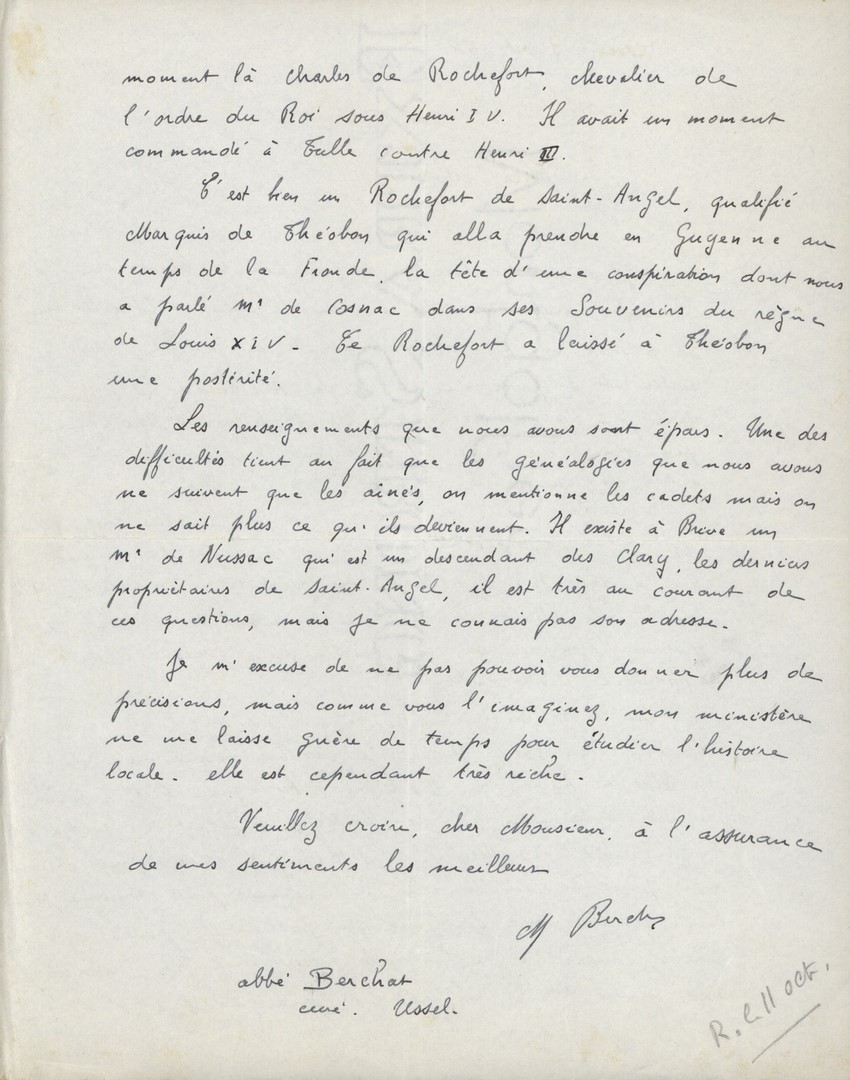 moment là Charles de Rochefort, chevalier de
l'ordre du Roi sous Henri IV. Il avait un moment
commandé à Tulle contre Henri III.
C'est bien un Rochefort de Saint-Angel, qualifié
Marquis de Théobon qui alla prendre en Guyenne au
temps de la Fronde, la tête d'une conspiration dont nous
a parlé Mr de Cosnac dans ses Souvenirs du règne
de Louis XIV - Ce Rochefort a laissé à Théobon
une postérité.
Les renseignements que nous avons sont épars. Une des
difficultés tient au fait que les généalogies que nous avons
ne suivent que les aînés, on mentionne les cadets mais on
ne sait plus ce qu'ils deviennent. Il existe à Brive un
Mr de Nussac qui est un descendant des Clary, les derniers
propriétaires de Saint-Angel, il est très au courant de
ces questions, mais je ne connais pas son adresse.
Je m'excuse de ne pas pouvoir vous donner plus de
précisions, mais comme vous l'imaginez, mon ministère
ne me laisse guère de temps pour étudier l'histoire
locale. elle est cependant très riche.
Veuillez croire, cher Monsieur, à l'assurance
de mes sentiments les meilleurs
M Berchat
abbé Berchat
curé. Ussel.
R. le 11 oct.